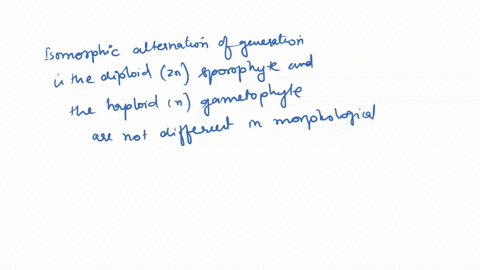 Isomorphic alternation of generation
is the diploid (2n) sporophyte and
the haploid (n) gametophyte
are not different in morphological